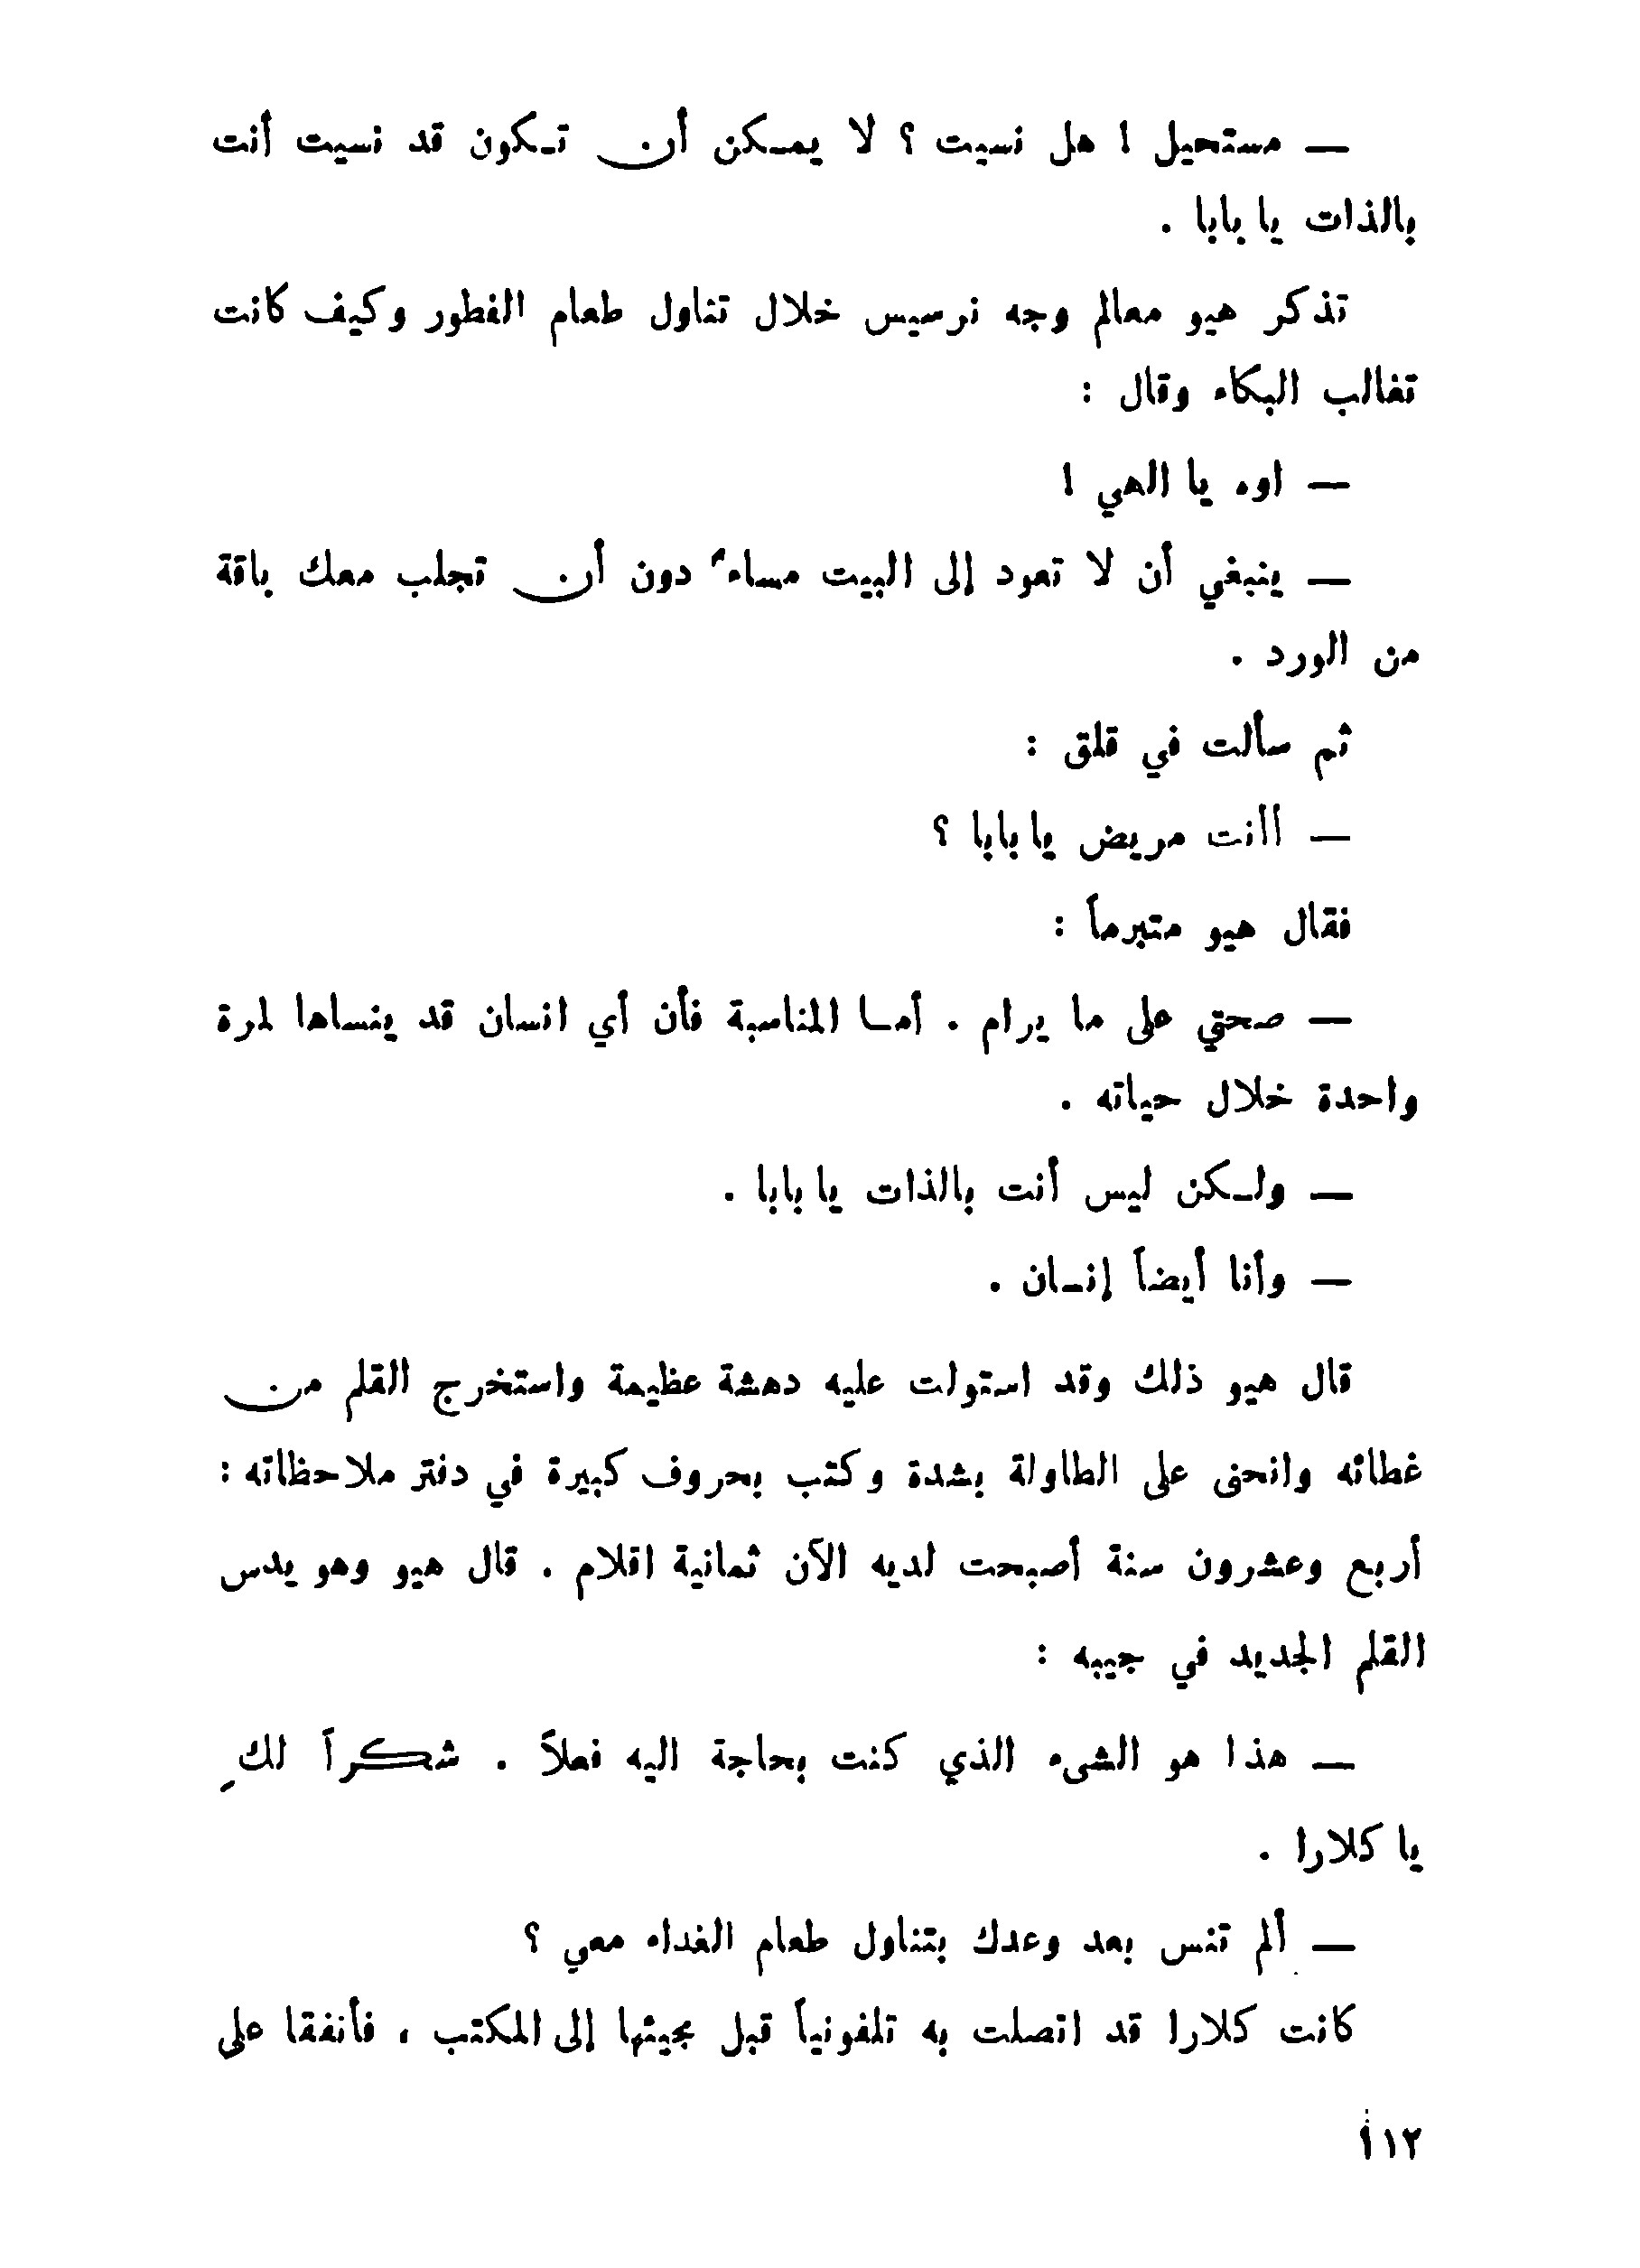 — مستحيل ! هل نسيت ؟ لا يمـكن أن تـكون قد نسيت أنت
بالذات يا بابا .
تذكر هيو معالم وجه نرسيس خلال تناول طعام الفطور وكيف كانت
تغالب البكاء وقال :
— اوه يا الهي !
— ينبغي أن لا تعود إلى البيت مساءً دون أن تجلب معك باقة
من الورد .
ثم سألت في قلق :
— اانت مريض يا بابا ؟
فقال هيو متبرماً :
— صحتي على ما يرام . أمـا المناسبة فأن أي انسان قد ينساها لمرة
واحدة خلال حياته .
— ولـكن ليس أنت بالذات يا بابا .
— وأنا أيضاً إنسان .
قال هيو ذلك وقد استولت عليه دهشة عظيمة واستخرج القلم من
غطائه وانحنى على الطاولة بشدة وكتب بحروف كبيرة في دفتر ملاحظاته :
أربع وعشرون سنة أصبحت لديه الآن ثمانية اقلام . قال هيو وهو يدس
القلم الجديد في جيبه :
— هذا هو الشيء الذي كنت بحاجة اليه فعلاً . شكراً لكِ
يا كلارا .
— ألم تنس بعد وعدك بتناول طعام الغداء معي ؟
كانت كلارا قد اتصلت به تلفونياً قبل مجيئها إلى المكتب ، فأنفقا على
١١٢